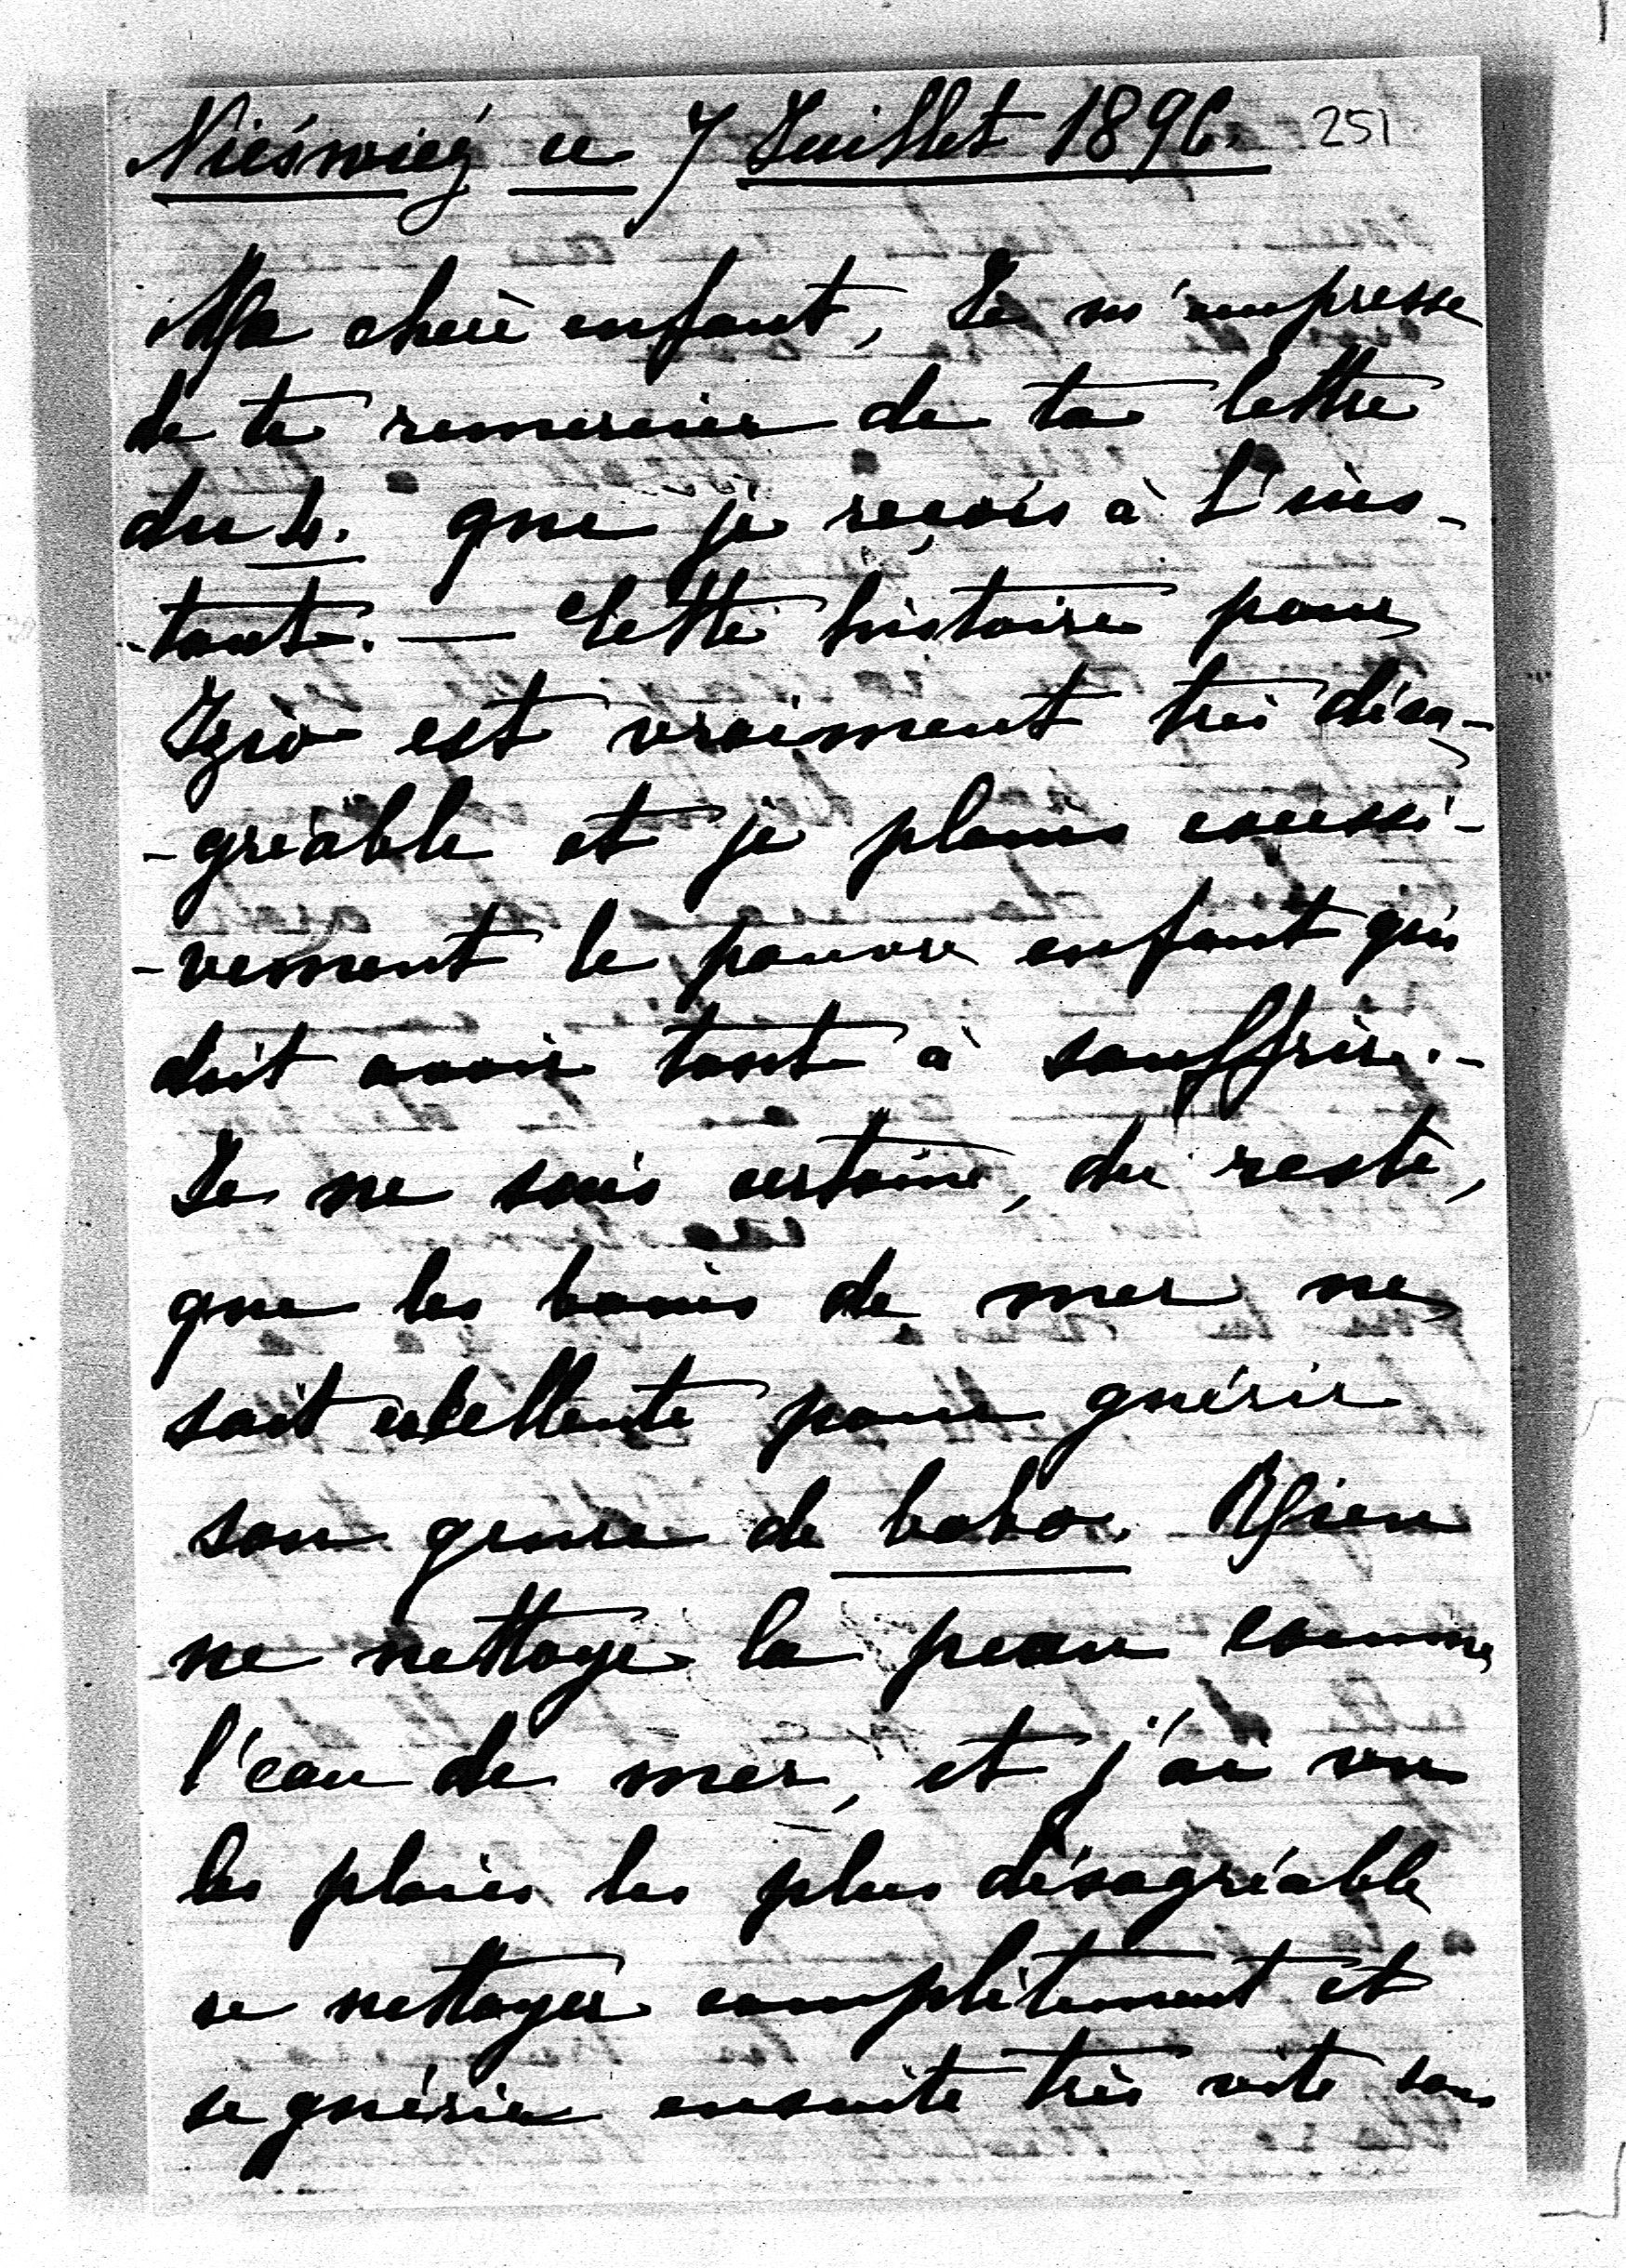 Nieświeź ce 7 Juillet 1896. 251
Ma chère enfant, Je m'empresse
de te remercier de ta lettre
du 4. que je reçois à l'ins-
-tant. — Cette histoire pour
Izio est vraiment très désa-
-gréable et je plains excessi-
-vement le pauvre enfant qui
doit avoir tant à souffrir. -
Je ne suis certaine, du reste,
que les bains de mer ne
soit excellente pour guérir
son genre de bobo. Rien
ne nettoye la peau comme
l'eau de mer, et j'ai vu
les plaies les plus désagréable
se nettoyer complètement et
se guérir ensuite très vite sous